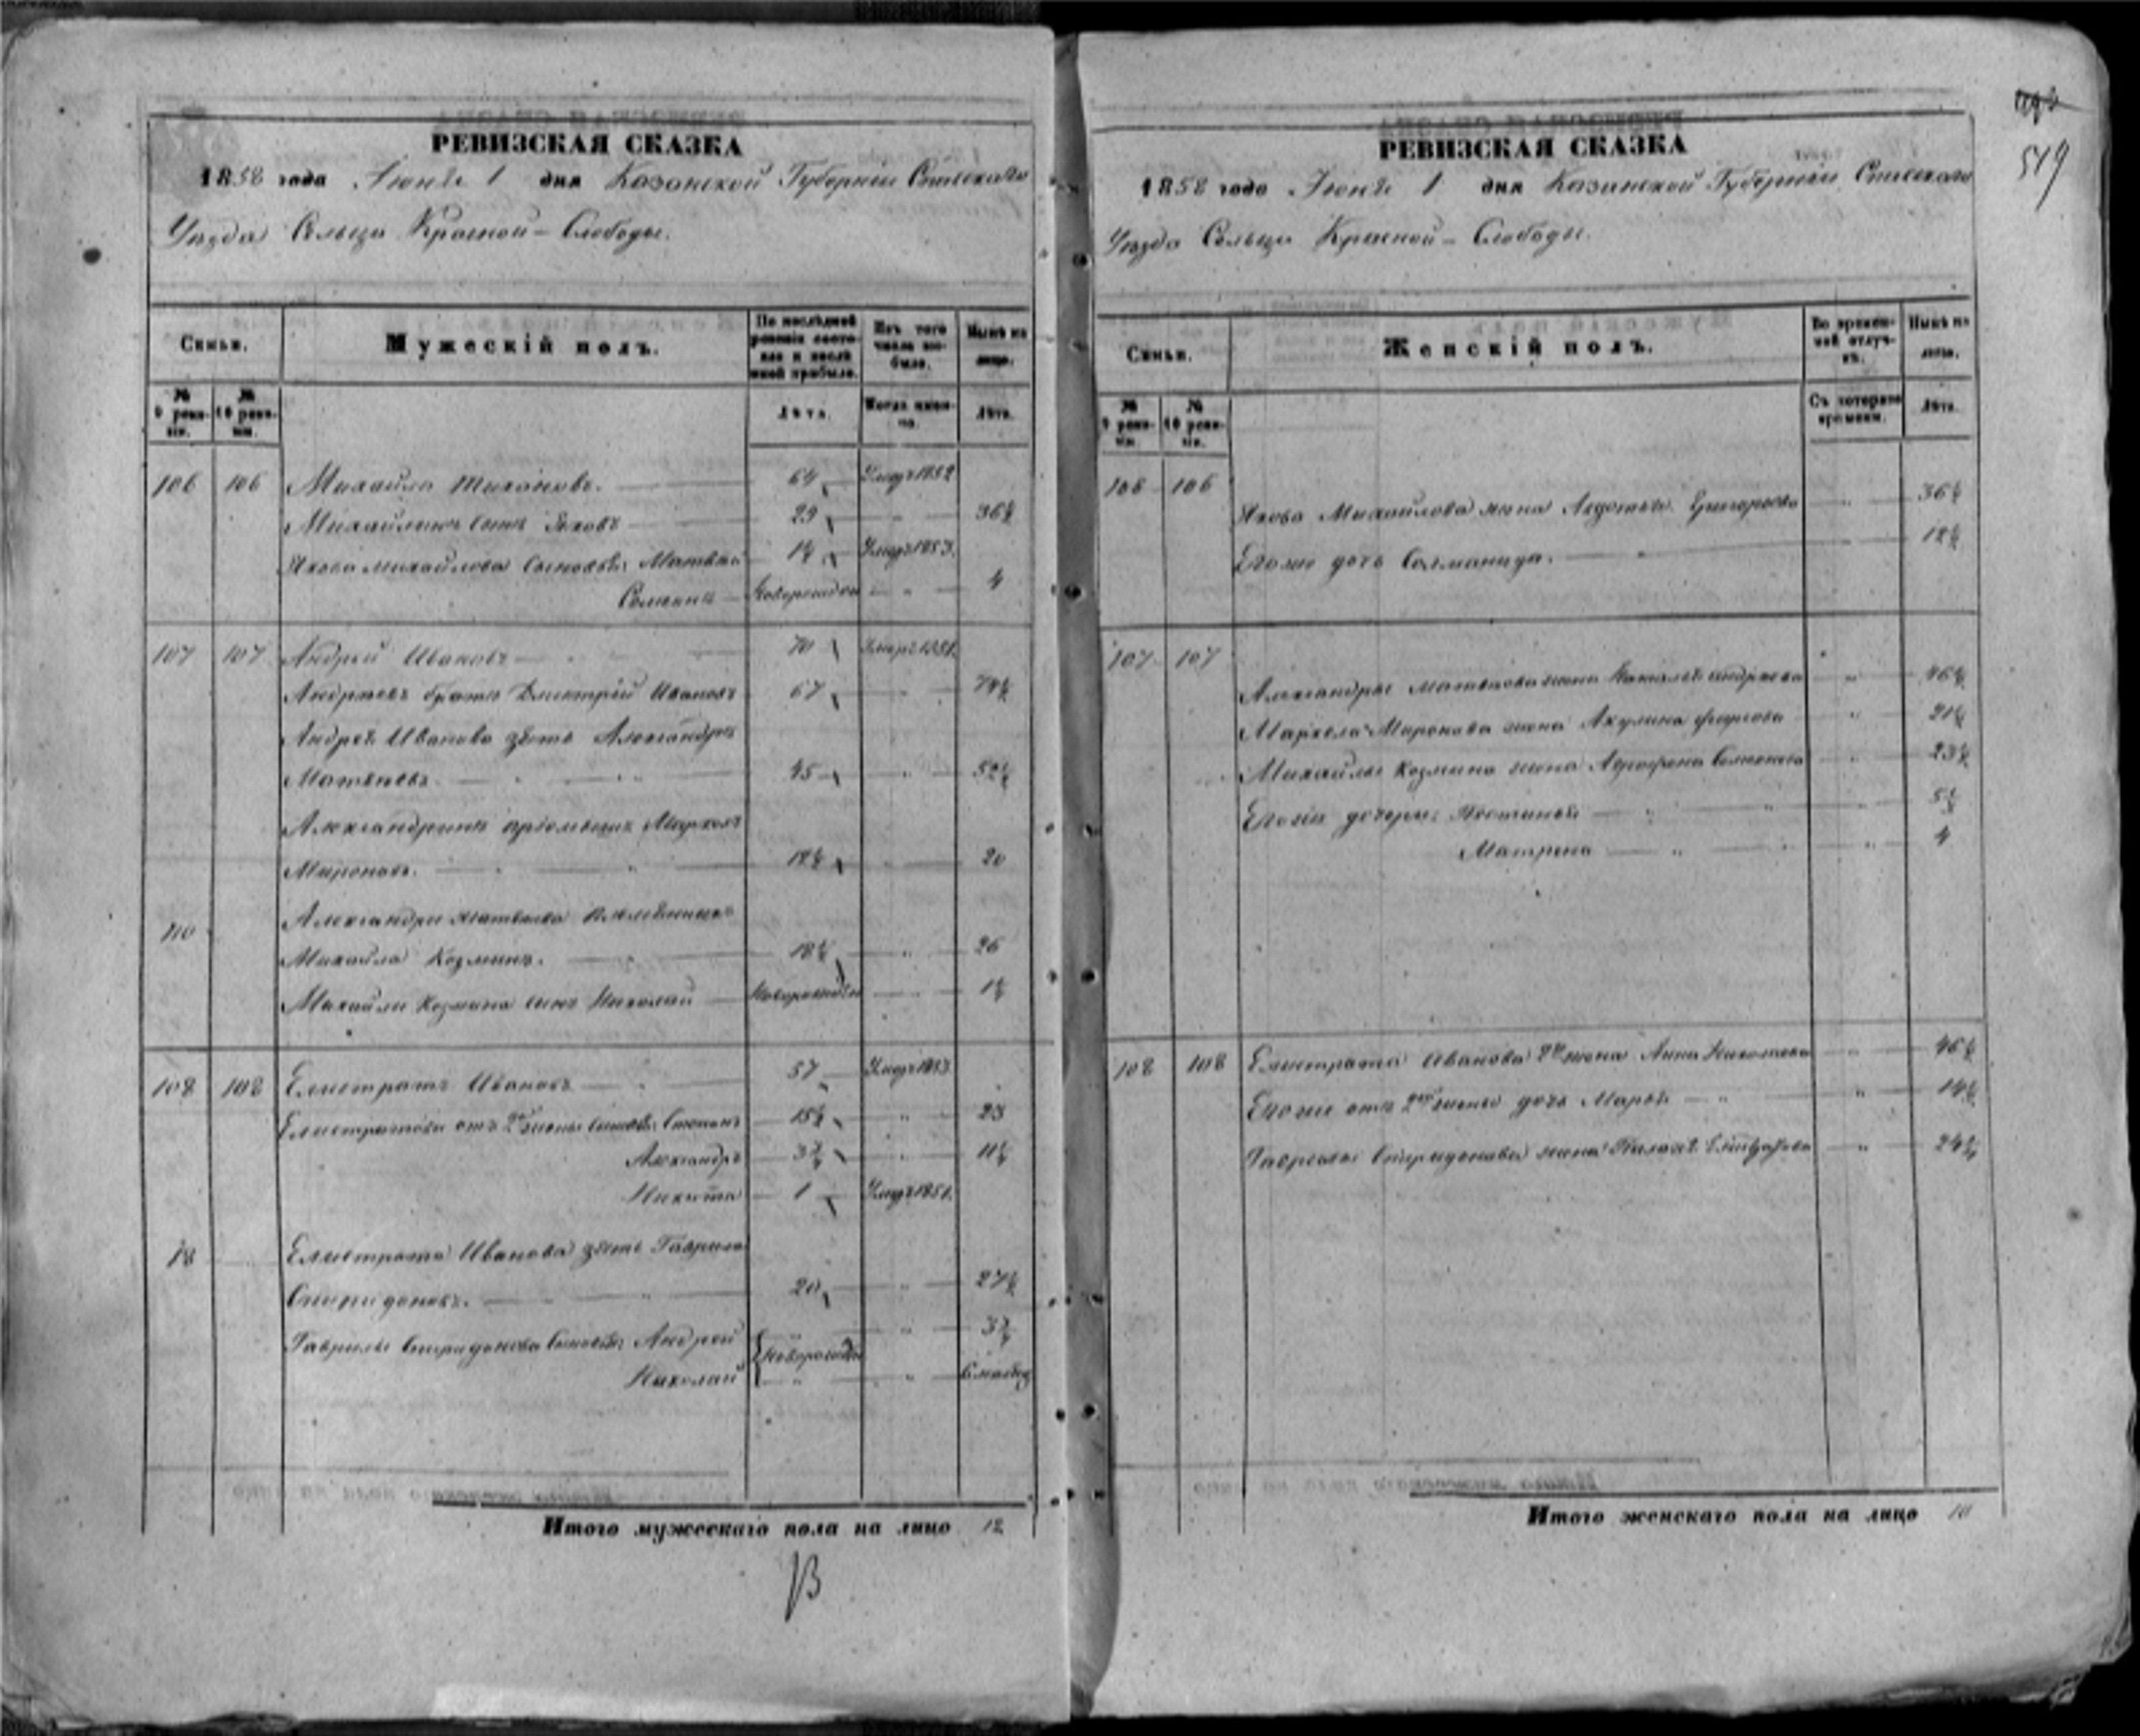 РЕВИЗСКАЯ СКАЗКА
1858 года Іюня 1 дня Казанской Губерніи Спасскаго
Уѣзда Сельца Красной-Слободы.
Семьи.
Мужескій полъ.
По послѣдней ревизіи состояло и послѣ оной прибыло.
Изъ того числа выбыло.
Нынѣ на лицо.
№ 9 ревизіи.
№ 10 ревизіи.
Лѣта.
Когда именно.
Лѣта.
106 106 Михайла Тихоновъ. 64 Умеръ 1852
Михайлинъ сынъ Яковъ 29 " 36½
Якова Михайлова сыновья: Матвѣй 14 Умеръ 1853.
Семенъ новорожден " 4
107 107 Андрей Ивановъ 70 Умеръ 1851.
Андреевъ братъ Дмитрій Ивановъ 67 " 74½
Андрея Иванова зять Александръ
Матвѣевъ 45 " 52½
Александринъ пріемышъ Маркелъ
Мироновъ. 12½ " 20
110 Александра Матвѣева племянникъ
Михайла Козминъ. 18½ " 26
Михайлы Козмина сынъ Николай Новорожден " 1½
108 108 Елистратъ Ивановъ 57 Умеръ 1853.
Елистратовы отъ 2й жены сыновья: Степанъ 15½ " 23
Александръ 3¾ " 11½
Никита 1 Умеръ 1851.
18 Елистрата Иванова зять Гаврила
Спиридоновъ. 20 " 27½
Гаврилы Спиридонова сыновья: Андрей Новорожден " 3¾
Николай " " 6 мѣсяц
Итого мужескаго пола на лицо 12
13
519
РЕВИЗСКАЯ СКАЗКА
1858 года Іюня 1 дня Казанской Губерніи Спасскаго
Уѣзда Сельца Красной-Слободы.
Семьи.
Женскій полъ.
Во временной отлучкѣ.
Нынѣ на лицо.
№ 9 ревизіи.
№ 10 ревизіи.
Съ котораго времени.
Лѣта.
106 106
Якова Михайлова жена Авдотья Григорьева " 36½
Егоже дочь Соломанида. " 12½
107 107
Александры Матвѣева жена Наталья Андреева " 46½
Маркела Миронова жена Акулина Фирсова " 21½
Михайлы Козмина жена Аграфена Семенова " 23½
Егоже дочери: Устинья " 5½
Матрена " 4
108 108 Елистрата Иванова 2я жена Анна Николаева " 46½
Егоже отъ 2й жены дочь Марья " 14½
Гаврилы Спиридонова жена Палагѣя Елистратова " 24¾
Итого женскаго пола на лицо 10